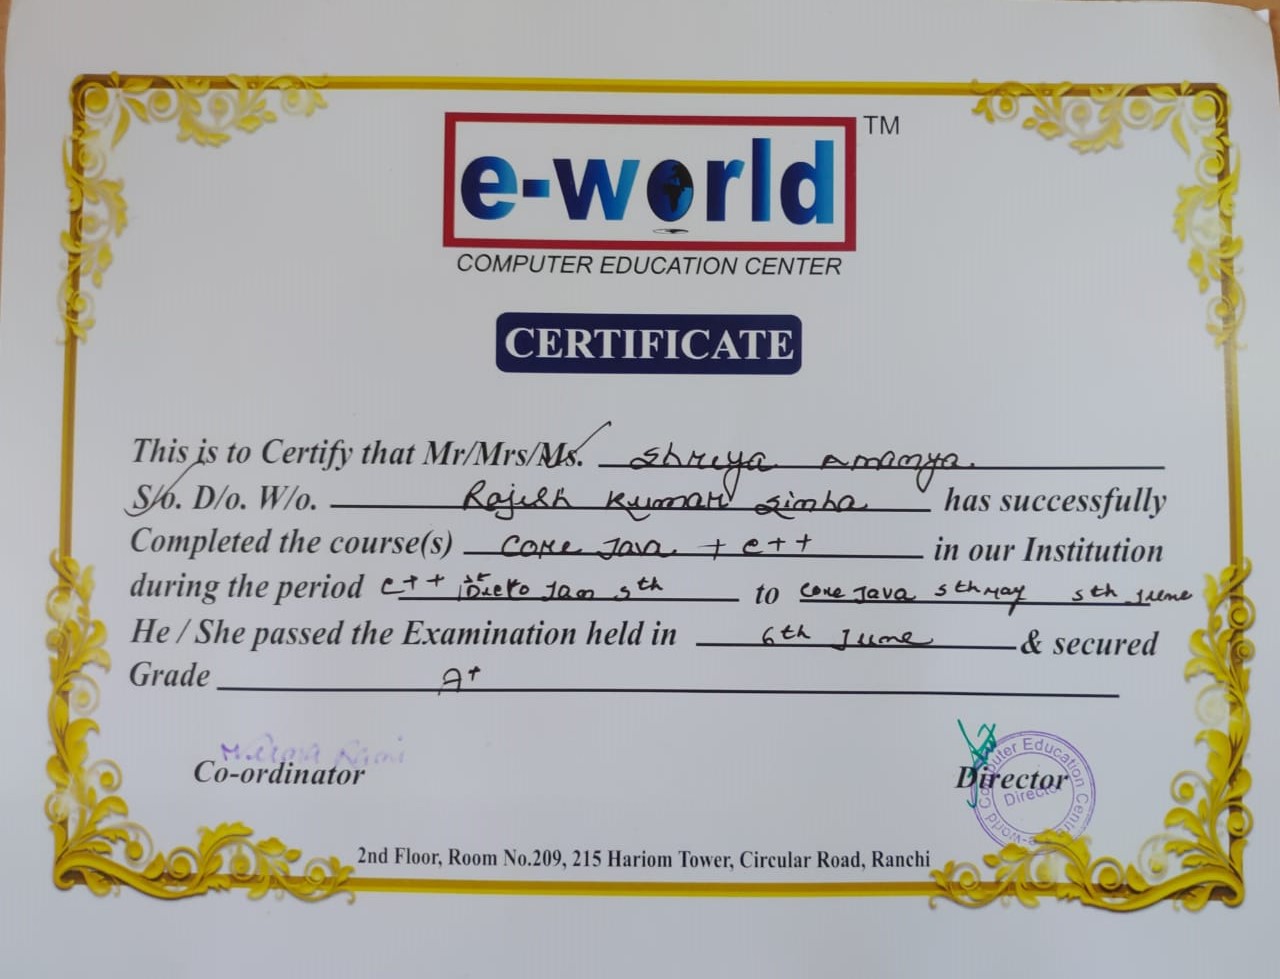 e-world TM
COMPUTER EDUCATION CENTER
CERTIFICATE
This is to Certify that Mr/Mrs/Ms. Shreya Ananya.
S/o. D/o. W/o. Rajesh Kumar Sinha has successfully
Completed the course(s) Core Java + C++ in our Institution
during the period C++ Jan 5th to Core Java 5th May 5th June
He / She passed the Examination held in 6th June & secured
Grade A+
Rani
Co-ordinator
Director
e-world Computer Education Centre
Director
2nd Floor, Room No.209, 215 Hariom Tower, Circular Road, Ranchi